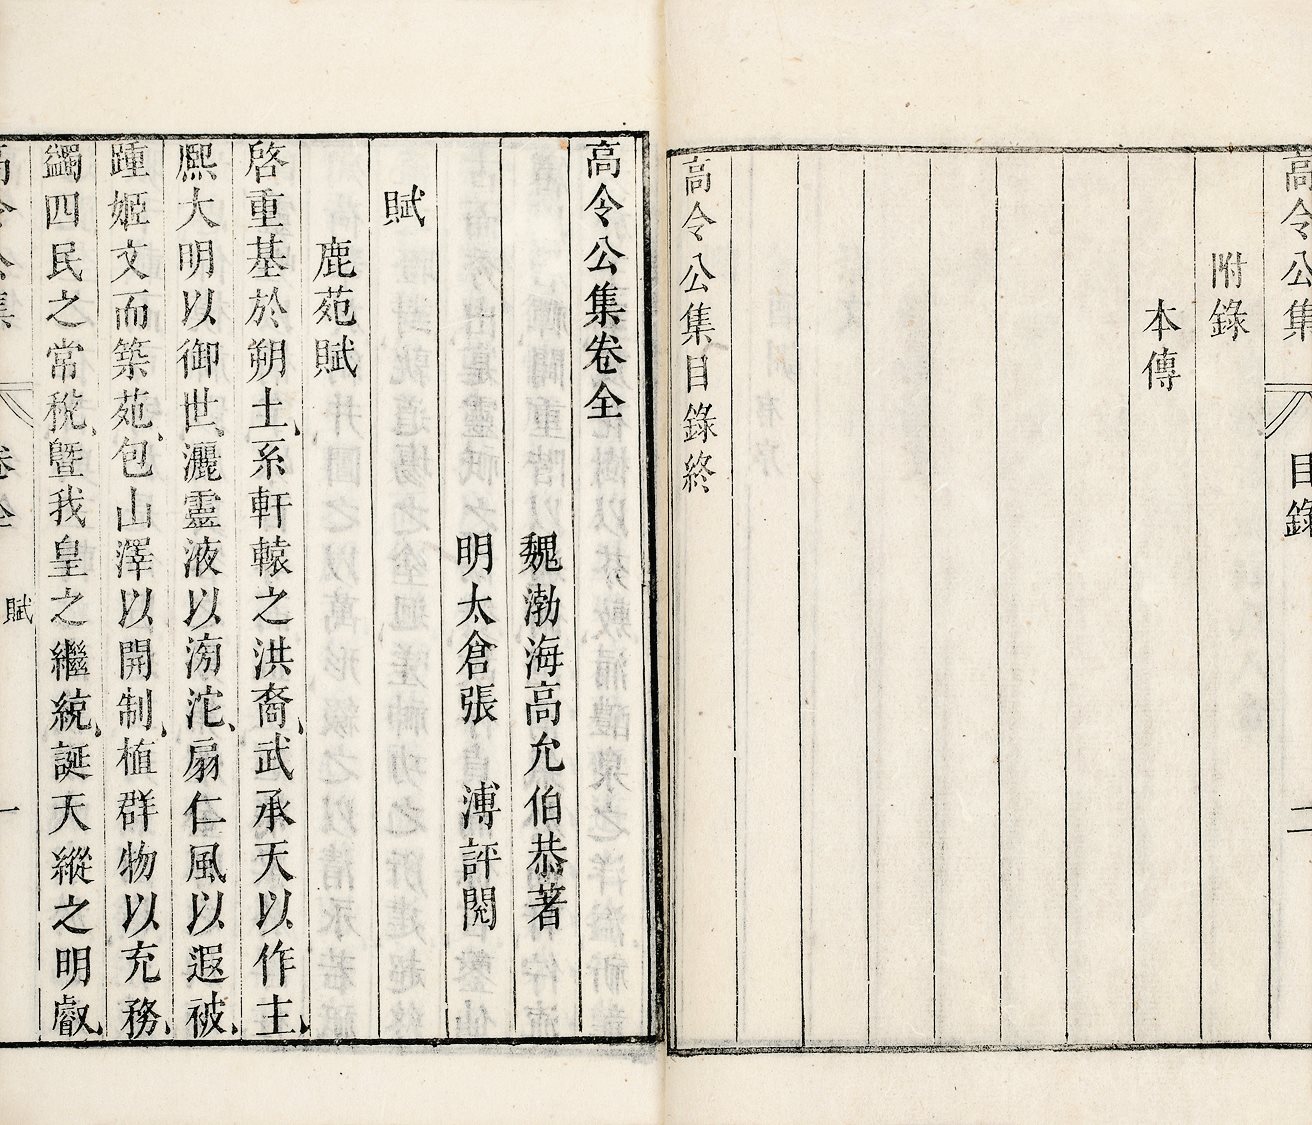 高令公集
目錄
二
附錄
本傳
高令公集目錄終
高令公集卷全
魏渤海高允伯恭著
明太倉張 溥評閱
賦
鹿苑賦
啓重基於朔土系軒轅之洪裔武承天以作主
熈大明以御世灑靈液以滂沱扇仁風以遐被
踵姬文而築苑包山澤以開制植群物以充務
蠲四民之常稅曁我皇之繼統誕天縱之明叡
高令公集
卷全
賦
一